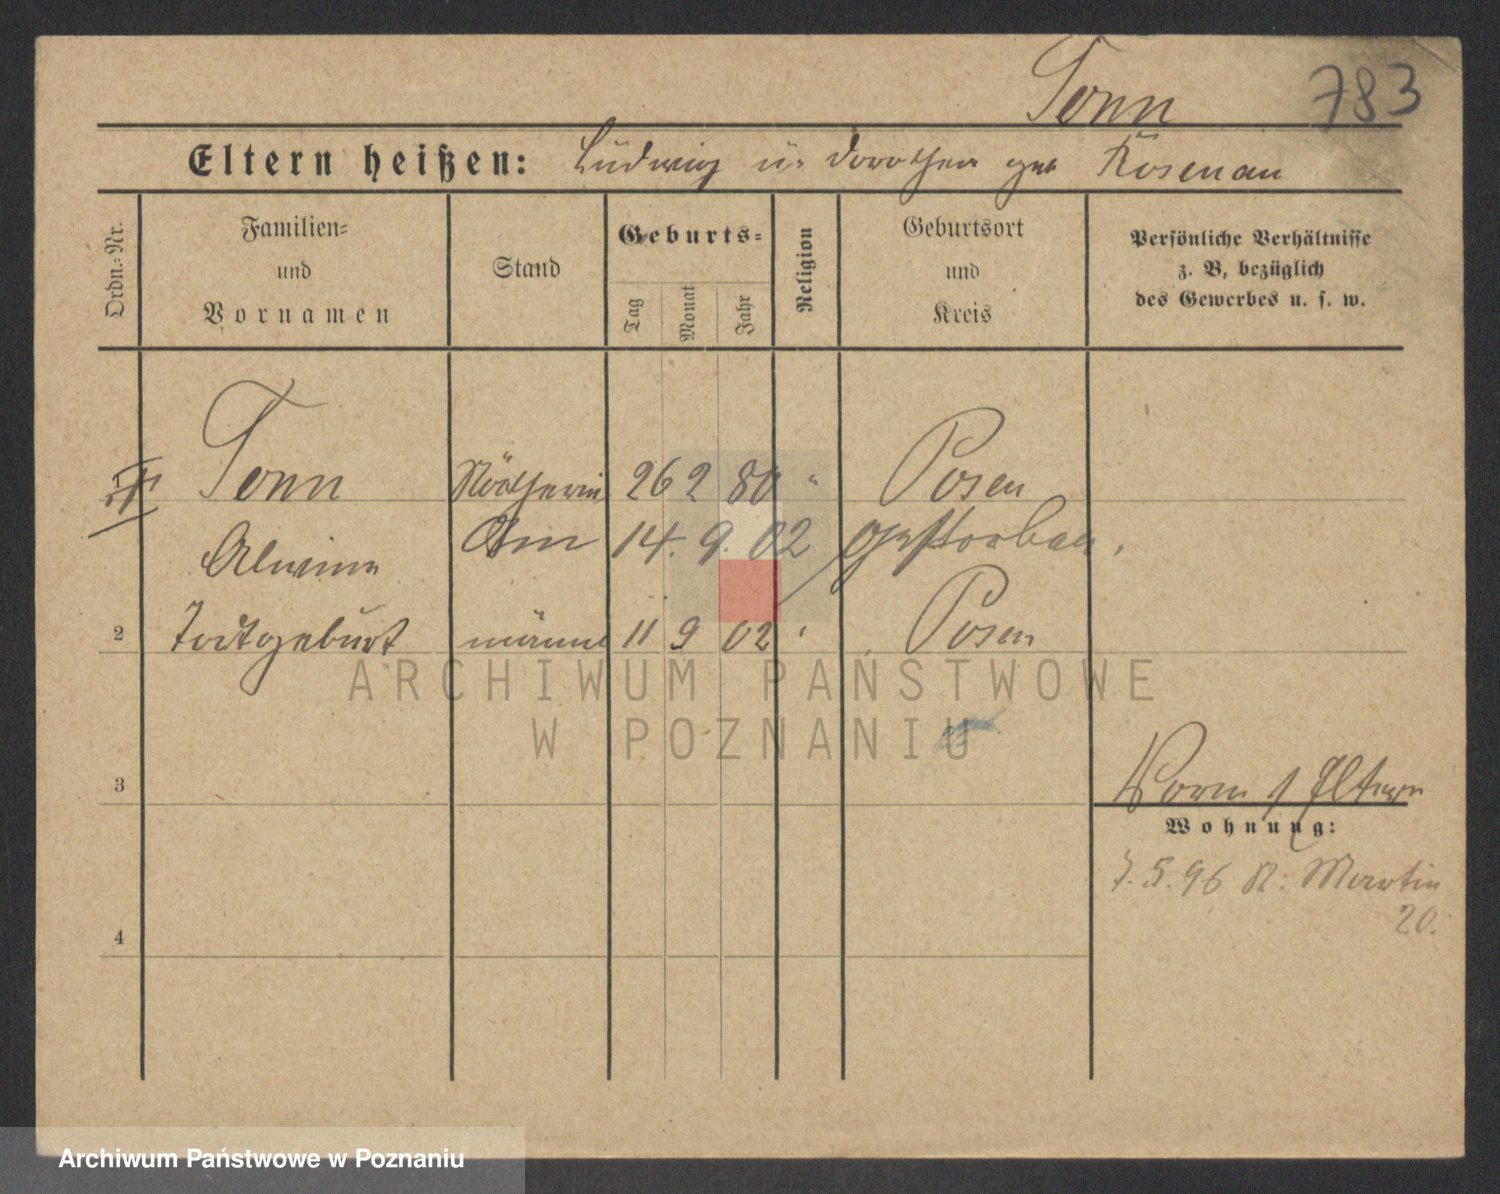 Tonn 783
Eltern heißen: Ludwig u. Dorothea geb Rosenau
Ordn.-Nr.
Familien-
und
Vornamen
Stand
Geburts-
Tag
Monat
Jahr
Religion
Geburtsort
und
Kreis
Persönliche Verhältnisse
z. B. bezüglich
des Gewerbes u. s. w.
Tonn Nätherin 26 2 80 " Posen
Am 14. 9. 02 gestorben.
Alwine
2 Todtgeburt männl 11 9 02 " Posen
ARCHIWUM PAŃSTWOWE
W POZNANIU
3 Eltern
Wohnung:
7. 5. 96 St. Martin
20.
4
Archiwum Państwowe w Poznaniu